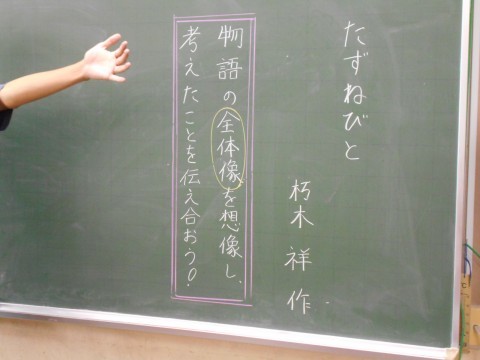 たずねびと
朽木祥作
物語の全体像を想像し、
考えたことを伝え合おう!